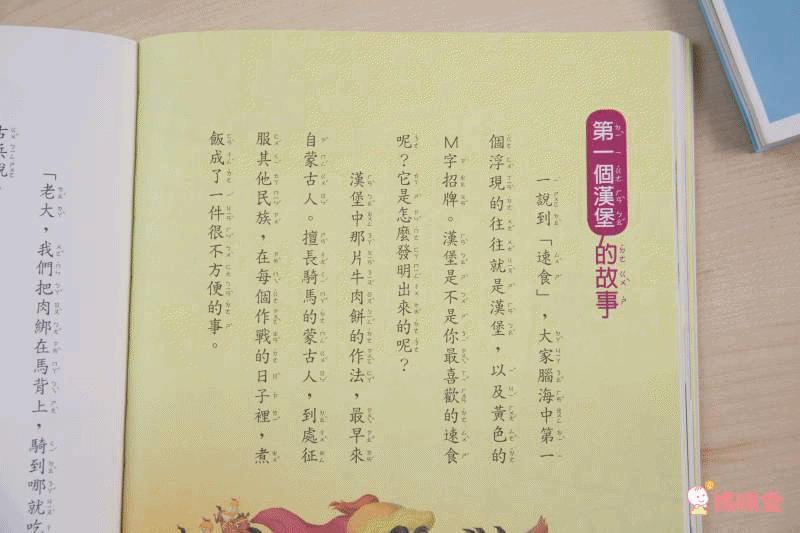 第一個漢堡的故事
一說到「速食」，大家腦海中第一
個浮現的往往就是漢堡，以及黃色的
M字招牌。漢堡是不是你最喜歡的速食
呢？它是怎麼發明出來的呢？
漢堡中那片牛肉餅的作法，最早來
自蒙古人。擅長騎馬的蒙古人，到處征
服其他民族，在每個作戰的日子裡，煮
飯成了一件很不方便的事。
「老大，我們把肉綁在馬背上，騎到哪就吃
古兵說
媽咪愛